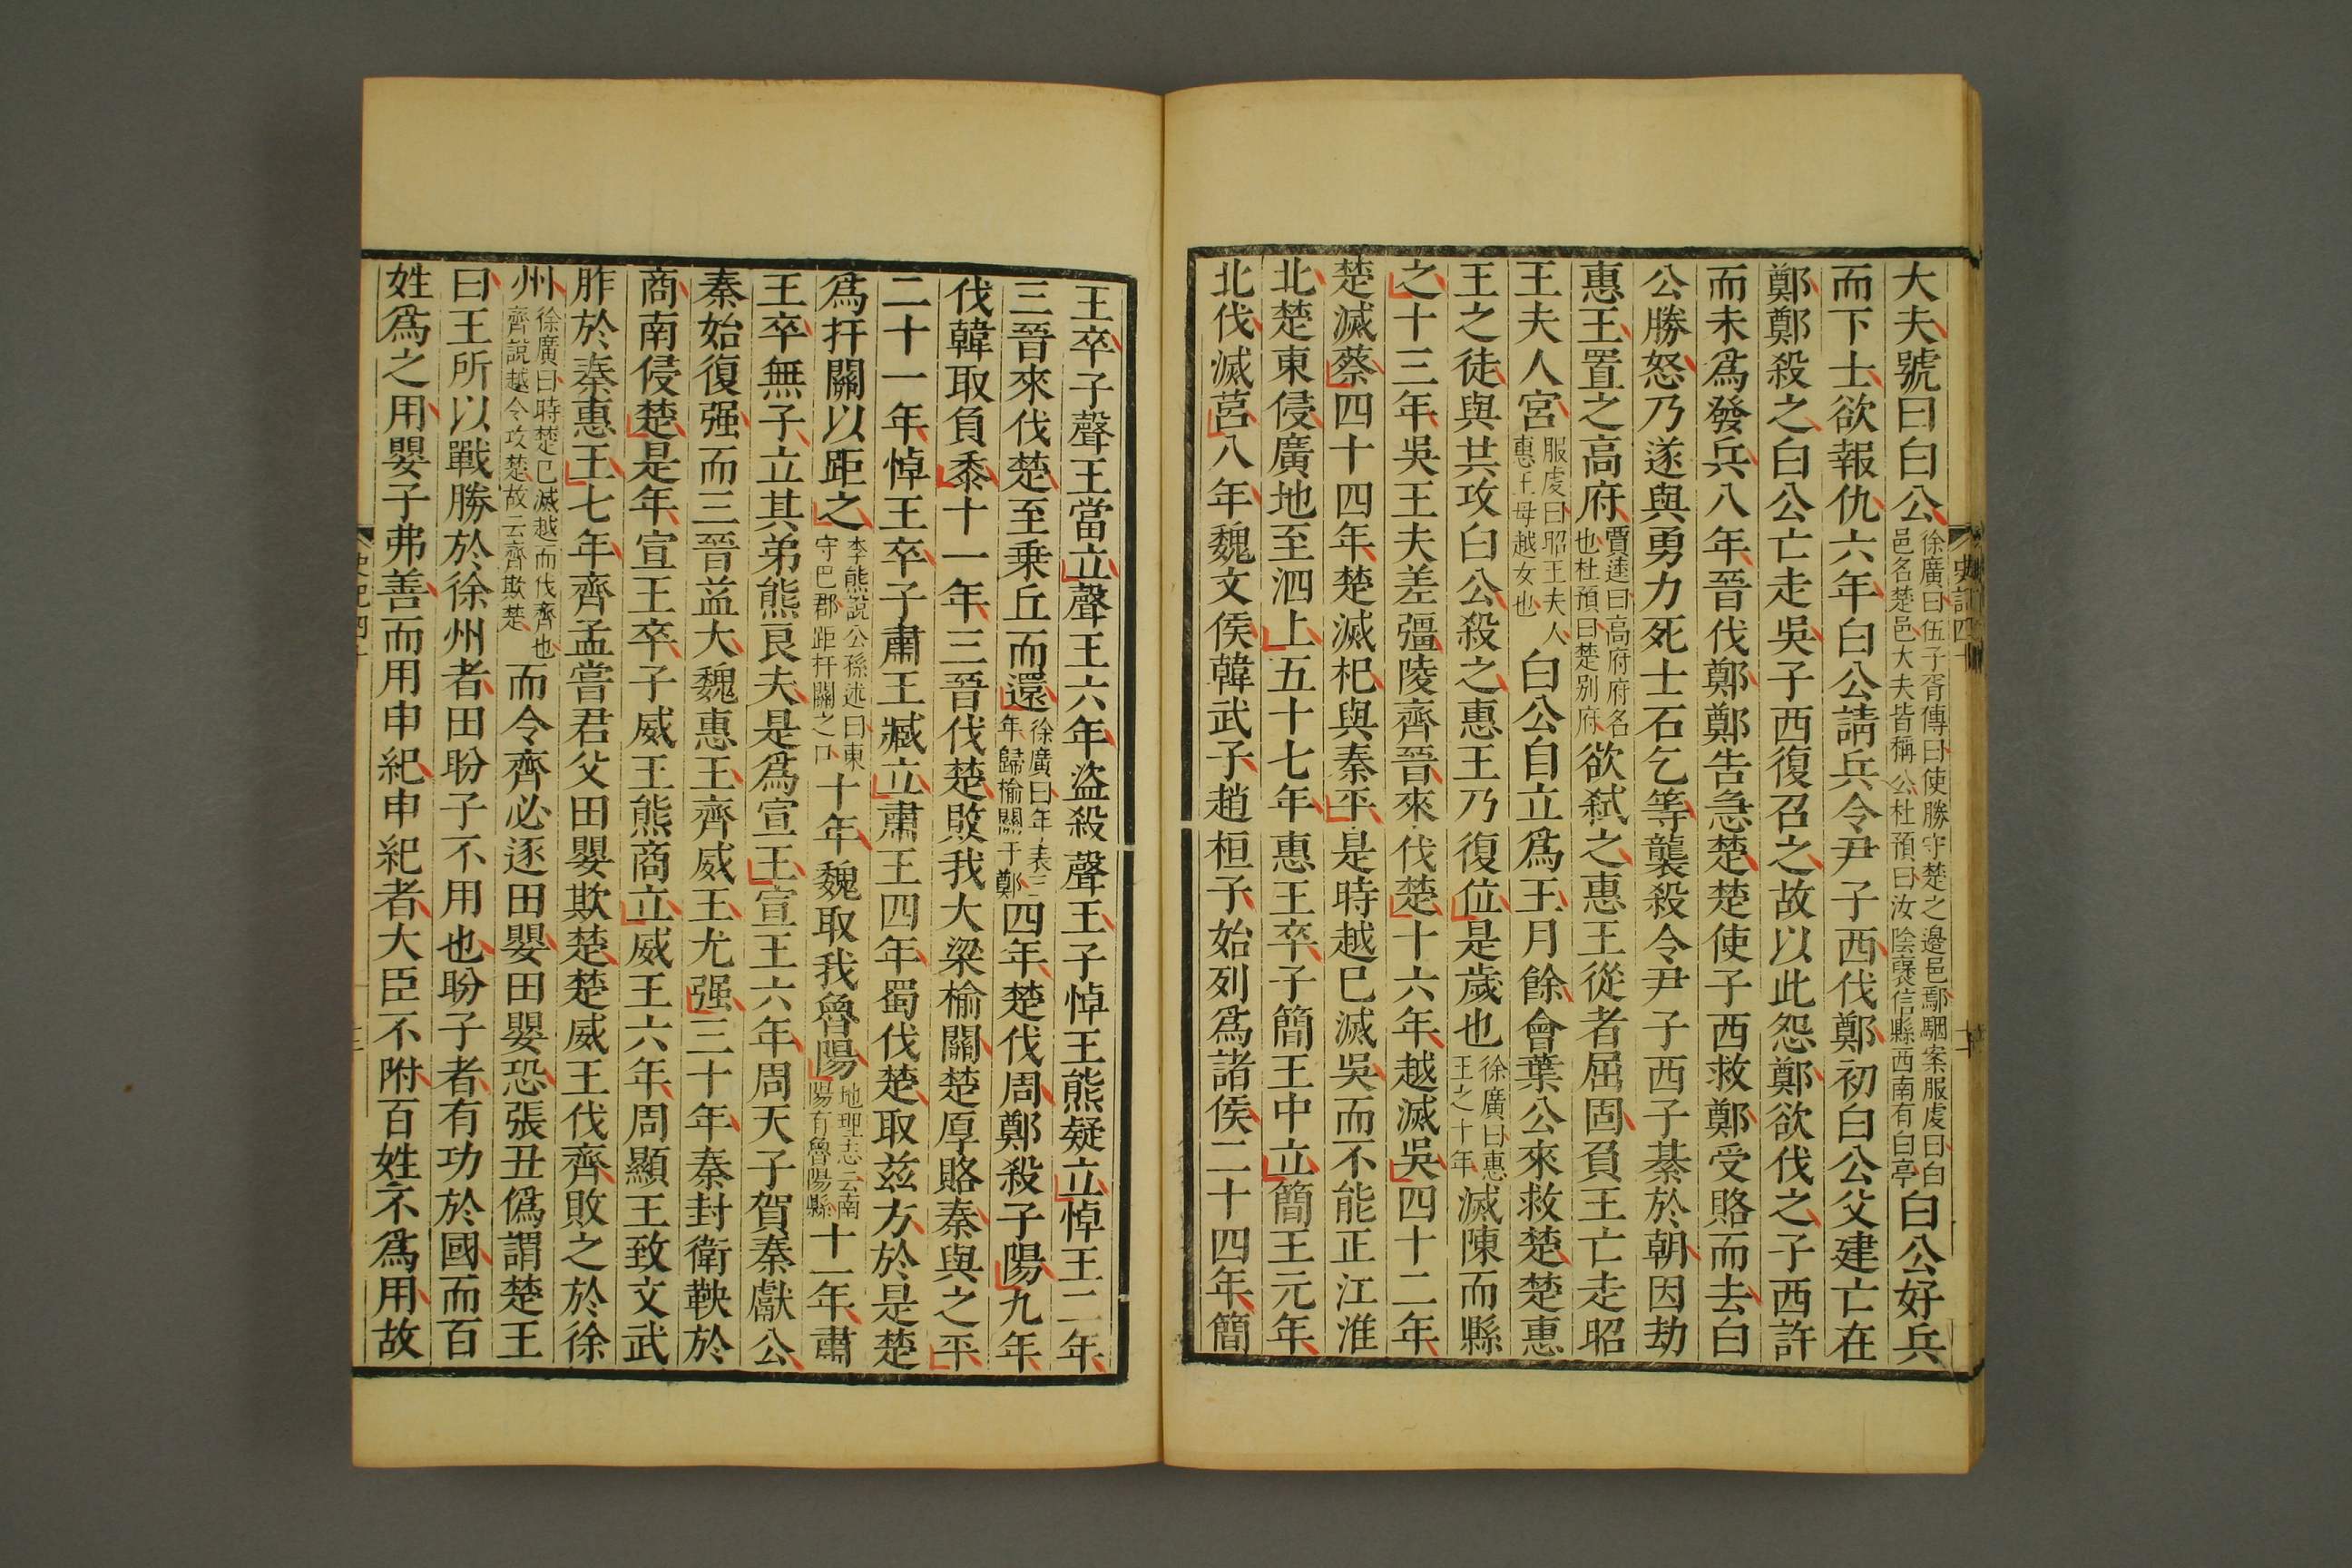 大夫號曰白公徐廣曰伍子胥傳曰使勝守楚之邊邑鄢駰案服虔曰白邑名楚邑大夫皆稱公杜預曰汝陰襃信縣西南有白亭白公好兵
而下士欲報仇六年白公請兵令尹子西伐鄭初白公父建亡在
鄭鄭殺之白公亡走吳子西復召之故以此怨鄭欲伐之子西許
而未爲發兵八年晉伐鄭鄭告急楚楚使子西救鄭受賂而去白
公勝怒乃遂與勇力死士石乞等襲殺令尹子西子綦於朝因劫
惠王置之高府賈逵曰高府府名也杜預曰楚別府欲弑之惠王從者屈固負王亡走昭
王夫人宮服虔曰昭王夫人惠王母越女也白公自立爲王月餘會葉公來救楚楚惠
王之徒與共攻白公殺之惠王乃復位是歲也徐廣曰惠王之十年滅陳而縣
之十三年吳王夫差彊陵齊晉來伐楚十六年越滅吳四十二年
楚滅蔡四十四年楚滅杞與秦平是時越已滅吳而不能正江淮
北楚東侵廣地至泗上五十七年惠王卒子簡王中立簡王元年
北伐滅莒八年魏文侯韓武子趙桓子始列爲諸侯二十四年簡
史記四十
王卒子聲王當立聲王六年盜殺聲王子悼王熊疑立悼王二年
三晉來伐楚至乗丘而還徐廣曰年表三年歸榆關于鄭四年楚伐周鄭殺子陽九年
伐韓取負黍十一年三晉伐楚敗我大梁榆關楚厚賂秦與之平
二十一年悼王卒子肅王臧立肅王四年蜀伐楚取兹方於是楚
爲扞關以距之李熊說公孫述曰東守巴郡距扞關之口十年魏取我魯陽地理志云南陽有魯陽縣十一年肅
王卒無子立其弟熊良夫是爲宣王宣王六年周天子賀秦獻公
秦始復强而三晉益大魏惠王齊威王尤强三十年秦封衛鞅於
商南侵楚是年宣王卒子威王熊商立威王六年周顯王致文武
胙於秦惠王七年齊孟嘗君父田嬰欺楚楚威王伐齊敗之於徐
州徐廣曰時楚已滅越而伐齊也齊說越令攻楚故云齊欺楚而令齊必逐田嬰田嬰恐張丑僞謂楚王
曰王所以戰勝於徐州者田盼子不用也盼子者有功於國而百
姓爲之用嬰子弗善而用申紀申紀者大臣不附百姓不爲用故